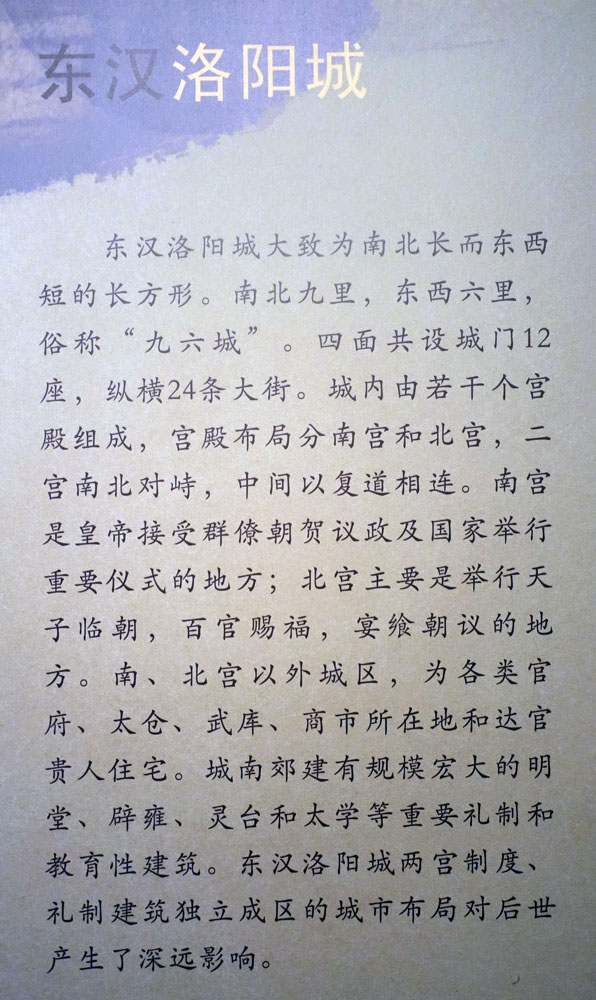 东汉洛阳城
东汉洛阳城大致为南北长而东西
短的长方形。南北九里，东西六里，
俗称“九六城”。四面共设城门12
座，纵横24条大街。城内由若干个宫
殿组成，宫殿布局分南宫和北宫，二
宫南北对峙，中间以复道相连。南宫
是皇帝接受群僚朝贺议政及国家举行
重要仪式的地方；北宫主要是举行天
子临朝，百官赐福，宴飨朝议的地
方。南、北宫以外城区，为各类官
府、太仓、武库、商市所在地和达官
贵人住宅。城南郊建有规模宏大的明
堂、辟雍、灵台和太学等重要礼制和
教育性建筑。东汉洛阳城两宫制度、
礼制建筑独立成区的城市布局对后世
产生了深远影响。